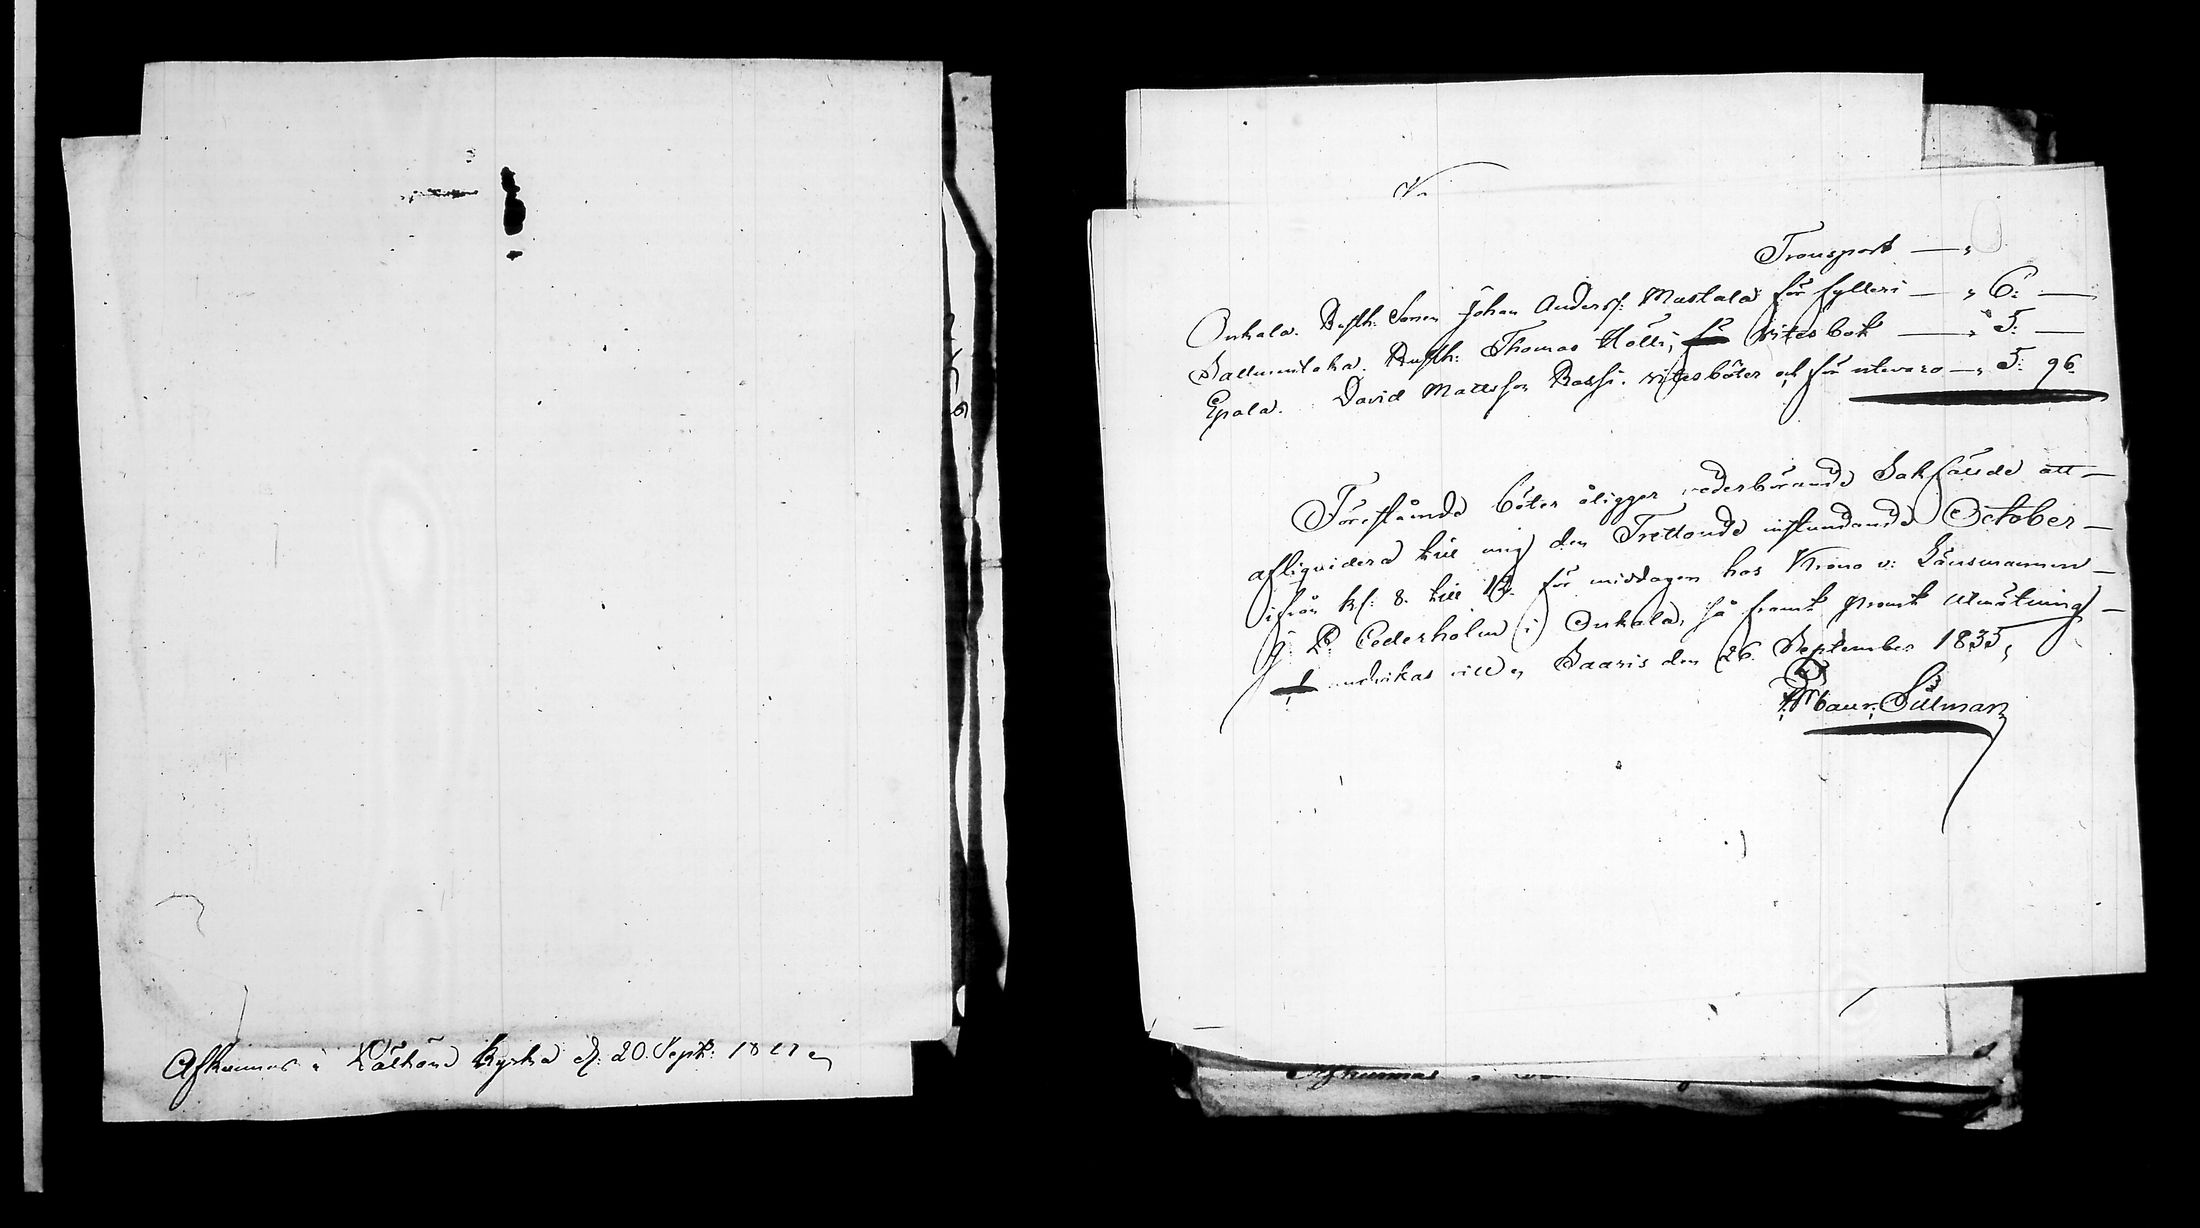 Afkunnas i Kälköne Kyrka d. 20 Sept: 18
Transport — „
Onkala. Rusth: Sonen Johan Anderss: Mustala för fylleri — „ 6: —
Sallumitaka. Rusth: Thomas Kölli, för vitesbot — „ 5: —
Epala. David Mattsson Bassi. vitesböter och för utevaro — „ 5: 96.
Förestående böter åligger vederbörande Sakfällde att
afliqvidera till mig den Trettonde instundande October
ifrån kl: 8. till 12. för middagen hos Krono v: Länsmannen
J. D. Cederholm i Onkala, så framt promt Utmätning
undvikas vill, Saaris den 26. September 1835,
Maur: Silman
Afkunnas i